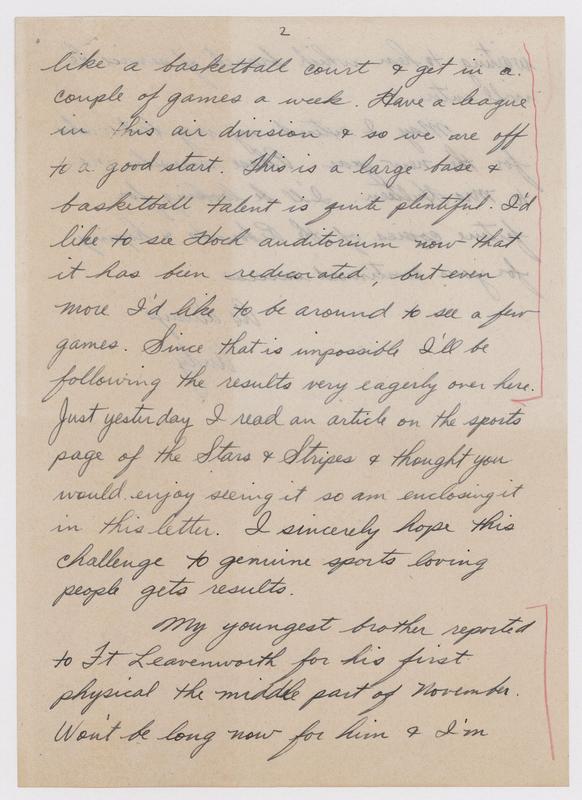 2
like a basketball court & get in a
couple of games a week. Have a league
in this air division & so we are off
to a good start. This is a large base &
basketball talent is quite plentiful. I'd
like to see Hoch auditorium now that
it has been redecorated, but even
more I'd like to be around to see a few
games. Since that is impossible I'll be
following the results very eagerly over here.
Just yesterday I read an article on the sports
page of the Stars & Stripes & thought you
would enjoy seeing it so am enclosing it
in this letter. I sincerely hope this
challenge to genuine sports loving
people gets results.
My youngest brother reported
to Ft Leavenworth for his first
physical the middle part of November.
Won't be long now for him & I'm